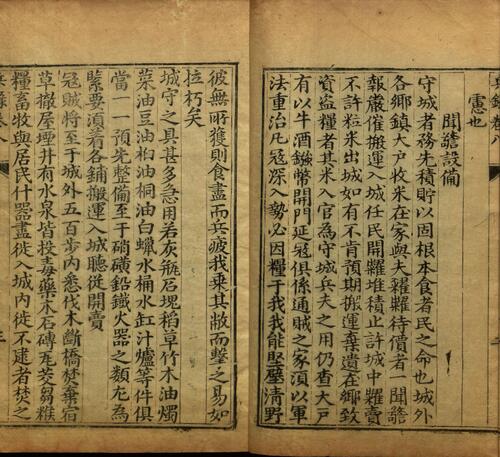 慮也
聞謍設備
守城者務先積貯以固根本食者民之命也城外
各鄉鎮大戶收米在家與夫囤糴待價者一聞謍
報嚴催搬運入城任民開糶堆積止許城中糴賣
不許粒米出城如有不肯預期搬運棄遺在鄉致
資盜糧者其米入官為守城兵夫之用仍查大戶
有以牛酒鏹幣開門延冦俱係通賊之家須以軍
法重治凡冦深入勢必因糧于我我能堅壁清野
彼無所獲則食盡而兵疲我乘其敝而擊之易如
拉朽矣
城守之具甚多急用若灰瓶石塊稻草竹木油燭
菜油豆油桕油桐油白蠟水桶水缸汁爐等件俱
當一一預先整備至于硝磺鉛鐵火器之類尤為
緊要須着各鋪搬運入城聽從開賣
冦賊將至于城外五百步內悉伐木斷橋焚棄宿
草撤屋堙井有水泉皆投毒藥木石磚瓦茭芻糗
糧畜牧與居民什器盡徙入城內徙不逮者焚之